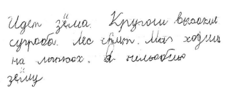 Идет зёма. Кругом высокия
сугробы. Лес спит. Мы ходим
на лыжах. Я нелюблю
зёму